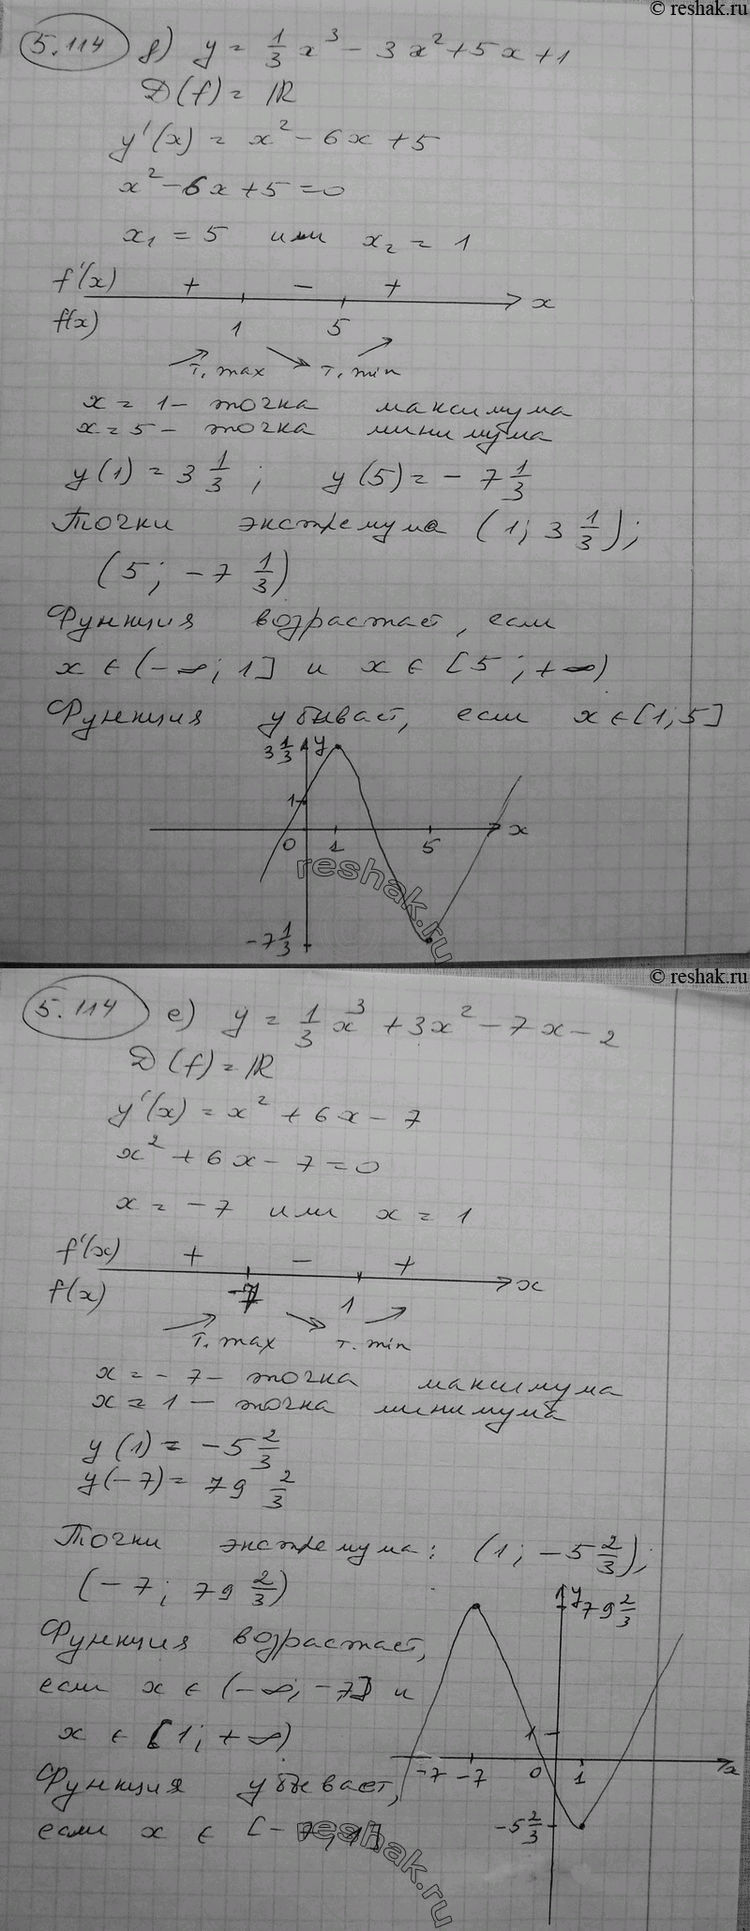 © reshak.ru
5.114 д) y = 1/3 x³ - 3x² + 5x + 1
D(f) = ℝ
y'(x) = x² - 6x + 5
x² - 6x + 5 = 0
x₁ = 5 или x₂ = 1
f'(x) + - +
x
f(x) 1 5
т. max т. min
x = 1 - точка максимума
x = 5 - точка минимума
y(1) = 3 1/3; y(5) = - 7 1/3
Точки экстремума (1; 3 1/3);
(5; -7 1/3)
Функция возрастает, если
x ∈ (-∞; 1] и x ∈ [5; +∞)
Функция убывает, если x ∈ [1; 5]
3 1/3 y
1
0 1 5 x
-7 1/3
reshak.ru
© reshak.ru
5.114 е) y = 1/3 x³ + 3x² - 7x - 2
D(f) = ℝ
y'(x) = x² + 6x - 7
x² + 6x - 7 = 0
x = -7 или x = 1
f'(x) + - +
x
f(x) -7 1
т. max т. min
x = -7 - точка максимума
x = 1 - точка минимума
y(1) = -5 2/3
y(-7) = 79 2/3
Точки экстремума: (1; -5 2/3);
(-7; 79 2/3)
y 79 2/3
Функция возрастает,
если x ∈ (-∞; -7] и
x ∈ [1; +∞)
1
-7 -7 0 1 x
Функция убывает,
-5 2/3
если x ∈ [-7; 1]
reshak.ru